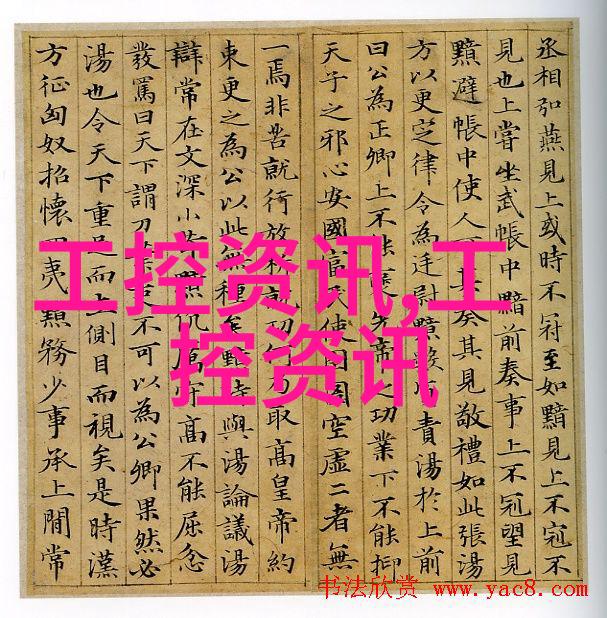 丞相弘燕見上或時不冠至如黯見上不冠不
見也上嘗坐武帳中黯前奏事上不冠望見
黯避帳中使人其奏其見敬禮如此張湯
方以更定律令為廷尉黯數責湯於上前
曰公為正卿上不能先帝之功業下不能抑
天子之邪心安國富民使囹圄空虛二者無
一焉非苦就行放析就功何取高皇帝約
束更之為公以此無種矣黯時與湯論議湯
辯常在文深小苛黯伉厲守高不能屈忿
發罵曰天下謂刀吏不可以為公卿果然必
湯也令天下重足而立側目而視矣是時漢
方征匈奴招懷夷黯務少事承上閒常
工控资讯,工
控资讯
书法欣赏 www.yac8.com